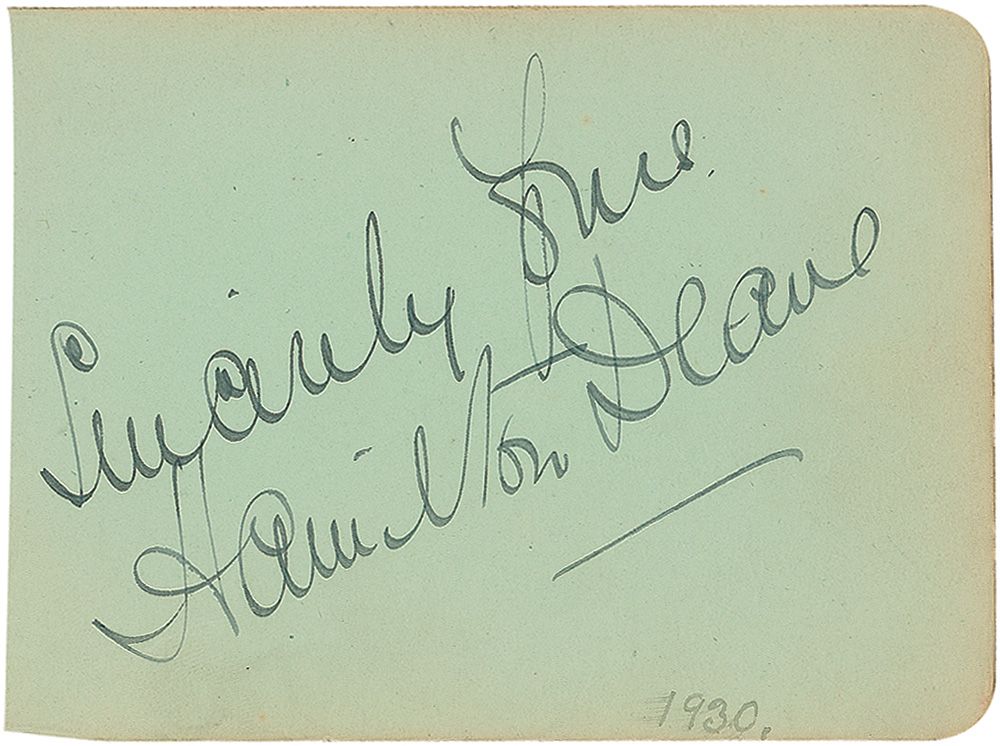 Sincerely Yours.
Hamilton Deane
1930.